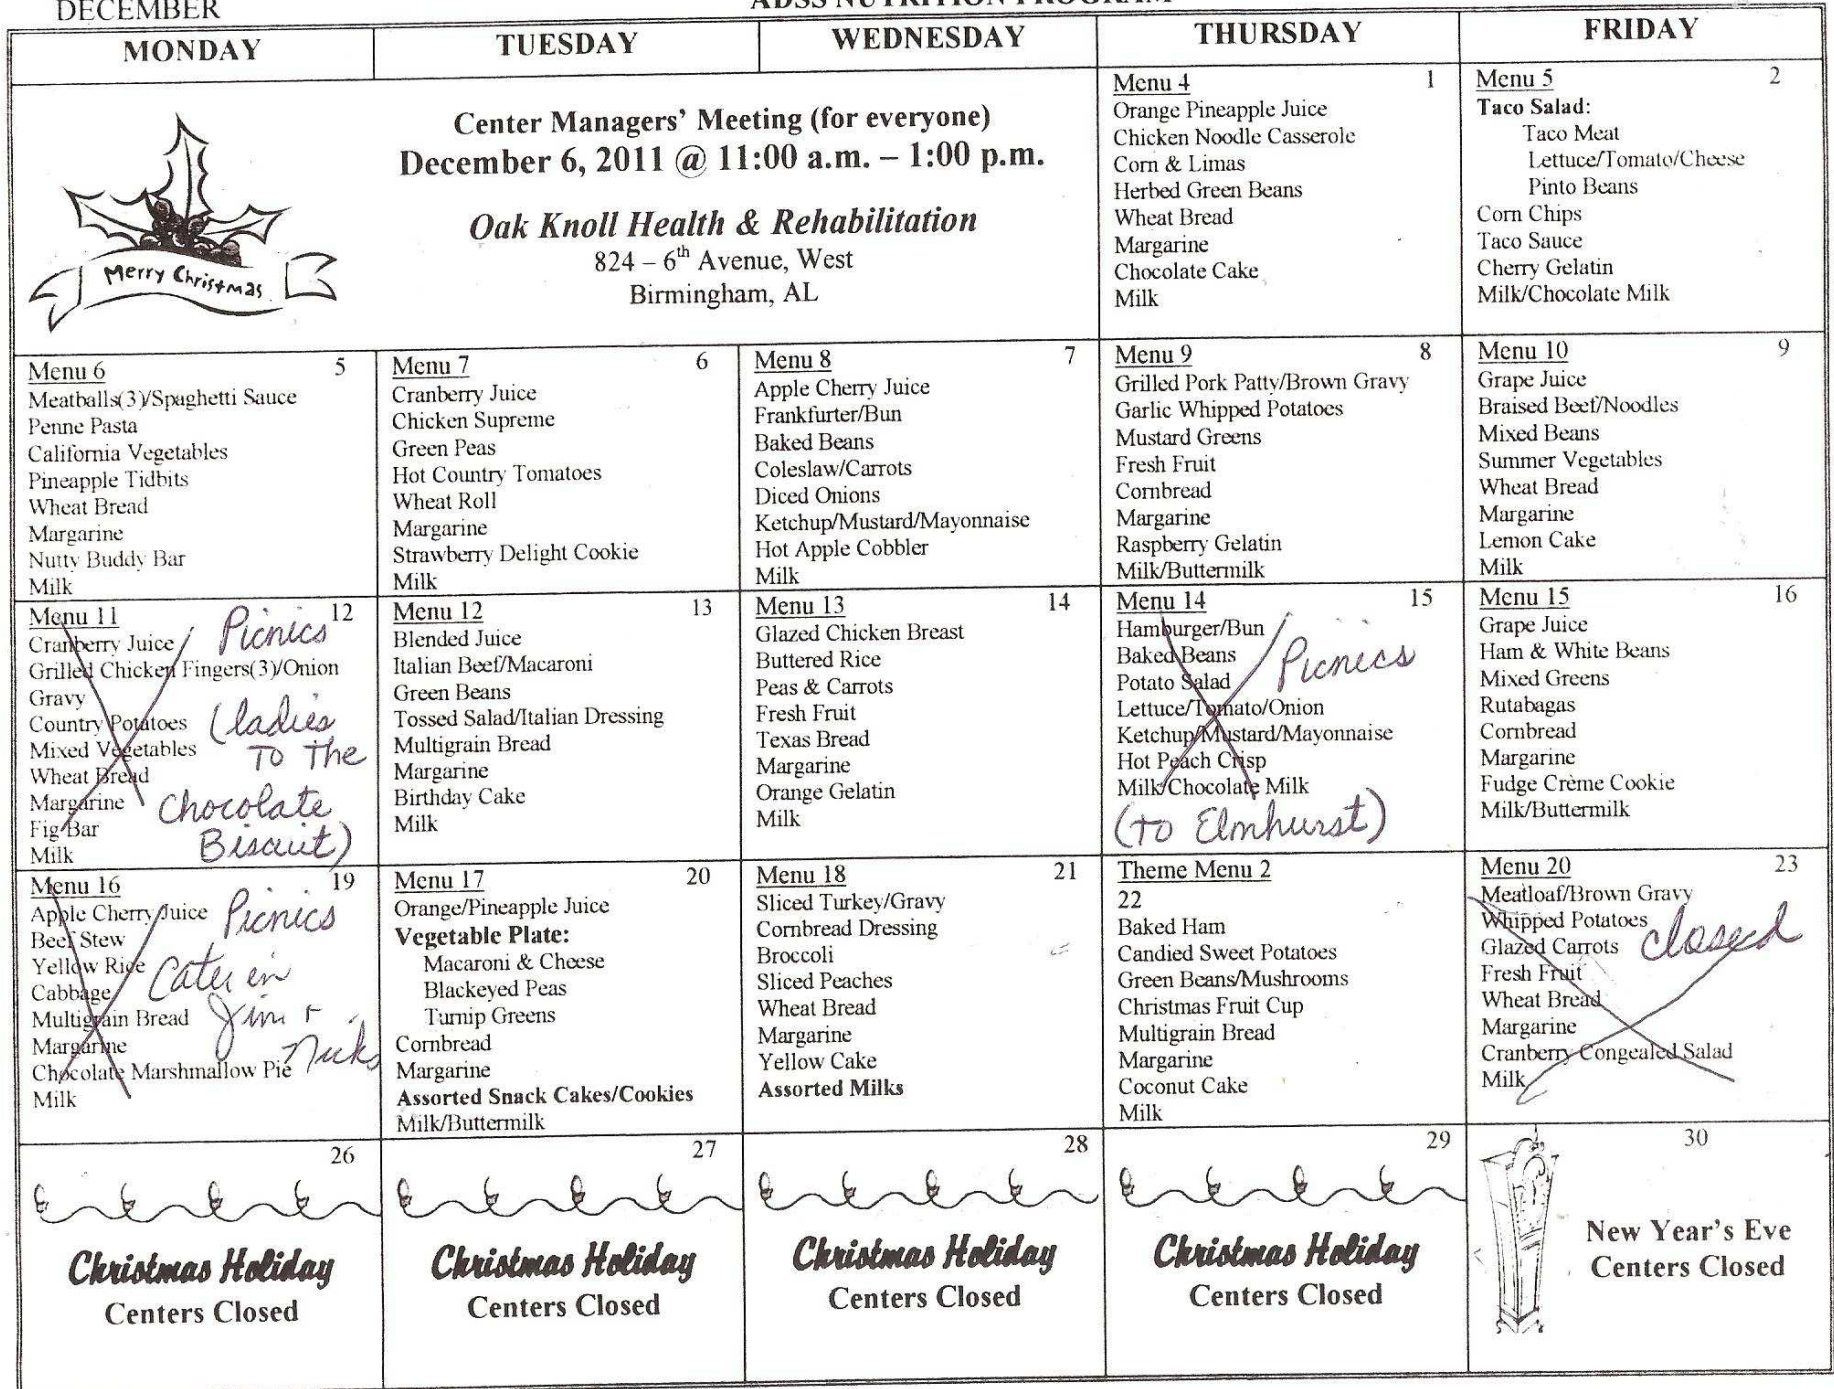 DECEMBER
ADSS NUTRITION PROGRAM
MONDAY
TUESDAY
WEDNESDAY
THURSDAY
FRIDAY
Merry Christmas
Center Managers' Meeting (for everyone)
December 6, 2011 @ 11:00 a.m. – 1:00 p.m.
Oak Knoll Health & Rehabilitation
824 – 6th Avenue, West
Birmingham, AL
Menu 4 1
Orange Pineapple Juice
Chicken Noodle Casserole
Corn & Limas
Herbed Green Beans
Wheat Bread
Margarine
Chocolate Cake
Milk
Menu 5 2
Taco Salad:
Taco Meat
Lettuce/Tomato/Cheese
Pinto Beans
Corn Chips
Taco Sauce
Cherry Gelatin
Milk/Chocolate Milk
Menu 6 5
Meatballs(3)/Spaghetti Sauce
Penne Pasta
California Vegetables
Pineapple Tidbits
Wheat Bread
Margarine
Nutty Buddy Bar
Milk
Menu 7 6
Cranberry Juice
Chicken Supreme
Green Peas
Hot Country Tomatoes
Wheat Roll
Margarine
Strawberry Delight Cookie
Milk
Menu 8 7
Apple Cherry Juice
Frankfurter/Bun
Baked Beans
Coleslaw/Carrots
Diced Onions
Ketchup/Mustard/Mayonnaise
Hot Apple Cobbler
Milk
Menu 9 8
Grilled Pork Patty/Brown Gravy
Garlic Whipped Potatoes
Mustard Greens
Fresh Fruit
Cornbread
Margarine
Raspberry Gelatin
Milk/Buttermilk
Menu 10 9
Grape Juice
Braised Beef/Noodles
Mixed Beans
Summer Vegetables
Wheat Bread
Margarine
Lemon Cake
Milk
Menu 11 12
Cranberry Juice Picnics
Grilled Chicken Fingers(3)/Onion
Gravy
Country Potatoes (ladies
Mixed Vegetables To The
Wheat Bread
Margarine Chocolate
Fig Bar Biscuit)
Milk
Menu 12 13
Blended Juice
Italian Beef/Macaroni
Green Beans
Tossed Salad/Italian Dressing
Multigrain Bread
Margarine
Birthday Cake
Milk
Menu 13 14
Glazed Chicken Breast
Buttered Rice
Peas & Carrots
Fresh Fruit
Texas Bread
Margarine
Orange Gelatin
Milk
Menu 14 15
Hamburger/Bun
Baked Beans Picnics
Potato Salad
Lettuce/Tomato/Onion
Ketchup/Mustard/Mayonnaise
Hot Peach Crisp
Milk/Chocolate Milk
(to Elmhurst)
Menu 15 16
Grape Juice
Ham & White Beans
Mixed Greens
Rutabagas
Cornbread
Margarine
Fudge Crème Cookie
Milk/Buttermilk
Menu 16 19
Apple Cherry Juice Picnics
Beef Stew
Yellow Rice Cater in
Cabbage
Multigrain Bread Jim +
Margarine Nicks
Chocolate Marshmallow Pie
Milk
Menu 17 20
Orange/Pineapple Juice
Vegetable Plate:
Macaroni & Cheese
Blackeyed Peas
Turnip Greens
Cornbread
Margarine
Assorted Snack Cakes/Cookies
Milk/Buttermilk
Menu 18 21
Sliced Turkey/Gravy
Cornbread Dressing
Broccoli
Sliced Peaches
Wheat Bread
Margarine
Yellow Cake
Assorted Milks
Theme Menu 2
22
Baked Ham
Candied Sweet Potatoes
Green Beans/Mushrooms
Christmas Fruit Cup
Multigrain Bread
Margarine
Coconut Cake
Milk
Menu 20 23
Meatloaf/Brown Gravy
Whipped Potatoes
Glazed Carrots closed
Fresh Fruit
Wheat Bread
Margarine
Cranberry Congealed Salad
Milk
26
Christmas Holiday
Centers Closed
27
Christmas Holiday
Centers Closed
28
Christmas Holiday
Centers Closed
29
Christmas Holiday
Centers Closed
30
New Year's Eve
Centers Closed